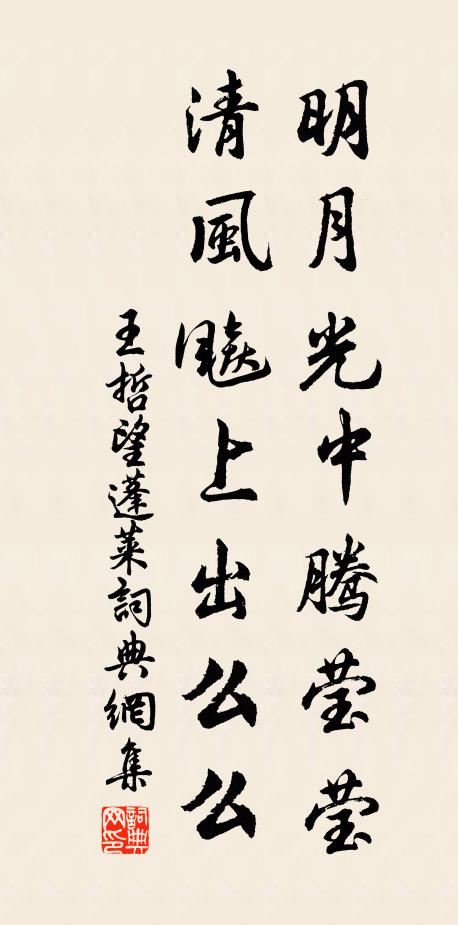 明月光中騰莹莹
清風上出么么
王哲望蓬莱詞典網集
詞典網印